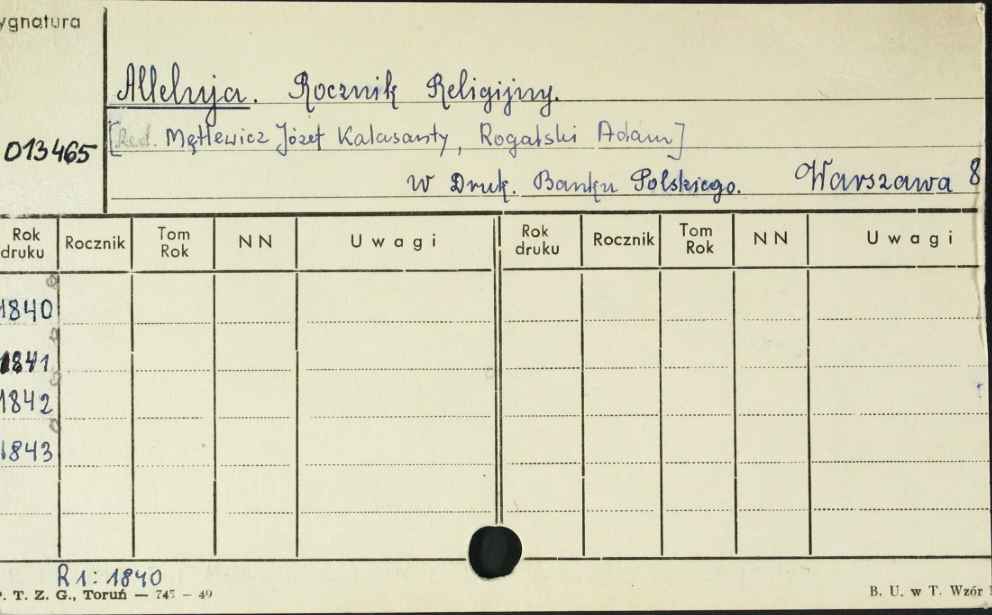 ygnatura
Alleluja. Rocznik Religijny.
[Red. Mętlewicz Józef Kalasanty, Rogalski Adam]
013465
W Druk. Banku Polskiego. Warszawa 8
Rok druku Rocznik Tom Rok N N U w a g i Rok druku Rocznik Tom Rok N N U w a g i
1840
1841
1842
1843
R 1: 1840
P. T. Z. G., Toruń — 745 — 49 B. U. w T. Wzór